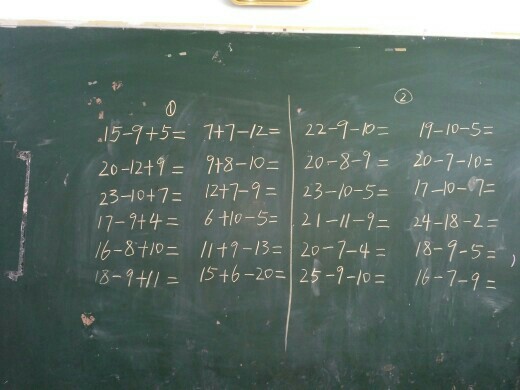 ①
15-9+5= 7+7-12=
20-12+9= 9+8-10=
23-10+7= 12+7-9=
17-9+4= 6+10-5=
16-8+10= 11+9-13=
18-9+11= 15+6-20=
②
22-9-10= 19-10-5=
20-8-9= 20-7-10=
23-10-5= 17-10-7=
21-11-9= 24-18-2=
20-7-4= 18-9-5=
25-9-10= 16-7-9=